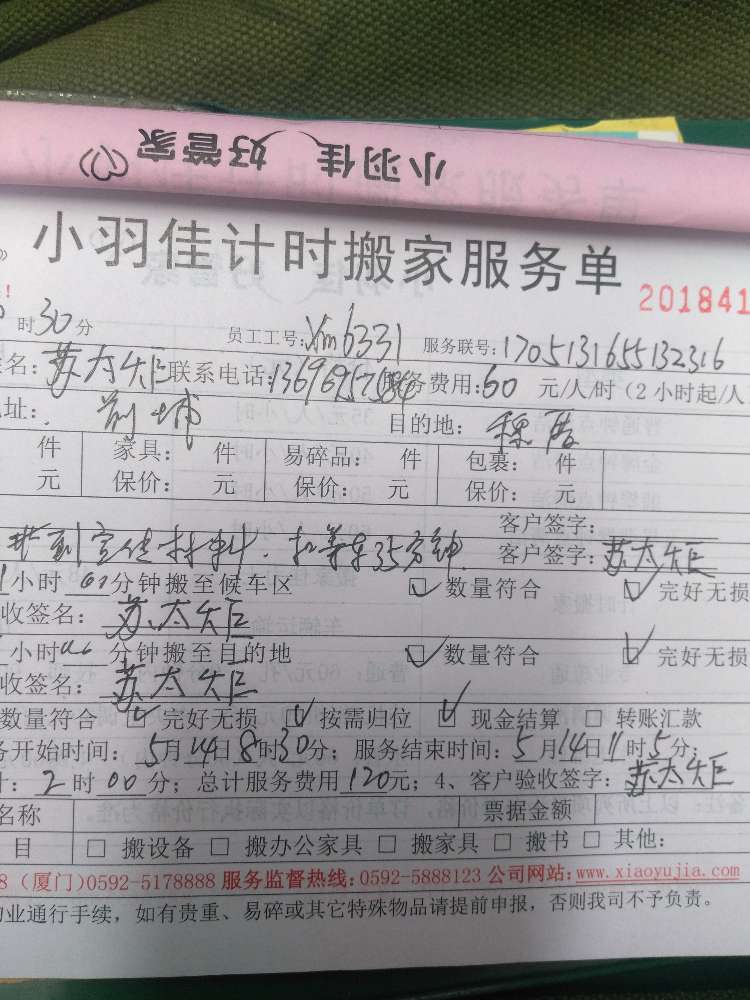 小羽佳 好管家
小羽佳计时搬家服务单
201841
时30分 员工工号:Xm6331 服务联号:1705131655132316
名:苏大钜 联系电话: 服务费用:60 元/人/时（2小时起/人
址: 目的地:
件 家具: 件 易碎品: 件 包裹: 件
元 保价: 元 保价: 元 保价: 元
客户签字:
扣等车35分钟 客户签字:苏大钜
小时 01分钟搬至候车区 ☑ 数量符合 ☑ 完好无损
收签名: 苏大钜
小时 分钟搬至目的地 ☑ 数量符合 ☑ 完好无损
收签名: 苏大钜
数量符合 ☑ 完好无损 ☑ 按需归位 ☑ 现金结算 □ 转账汇款
务开始时间: 5月14日8时30分; 服务结束时间: 5月14日11时5分;
计: 2时00分; 总计服务费用120元; 4、客户验收签字: 苏大钜
名称 票据金额
目 □ 搬设备 □ 搬办公家具 □ 搬家具 □ 搬书 □ 其他:
8（厦门)0592-5178888 服务监督热线:0592-5888123 公司网站:www.xiaoyujia.com
业通行手续，如有贵重、易碎或其它特殊物品请提前申报，否则我司不予负责。